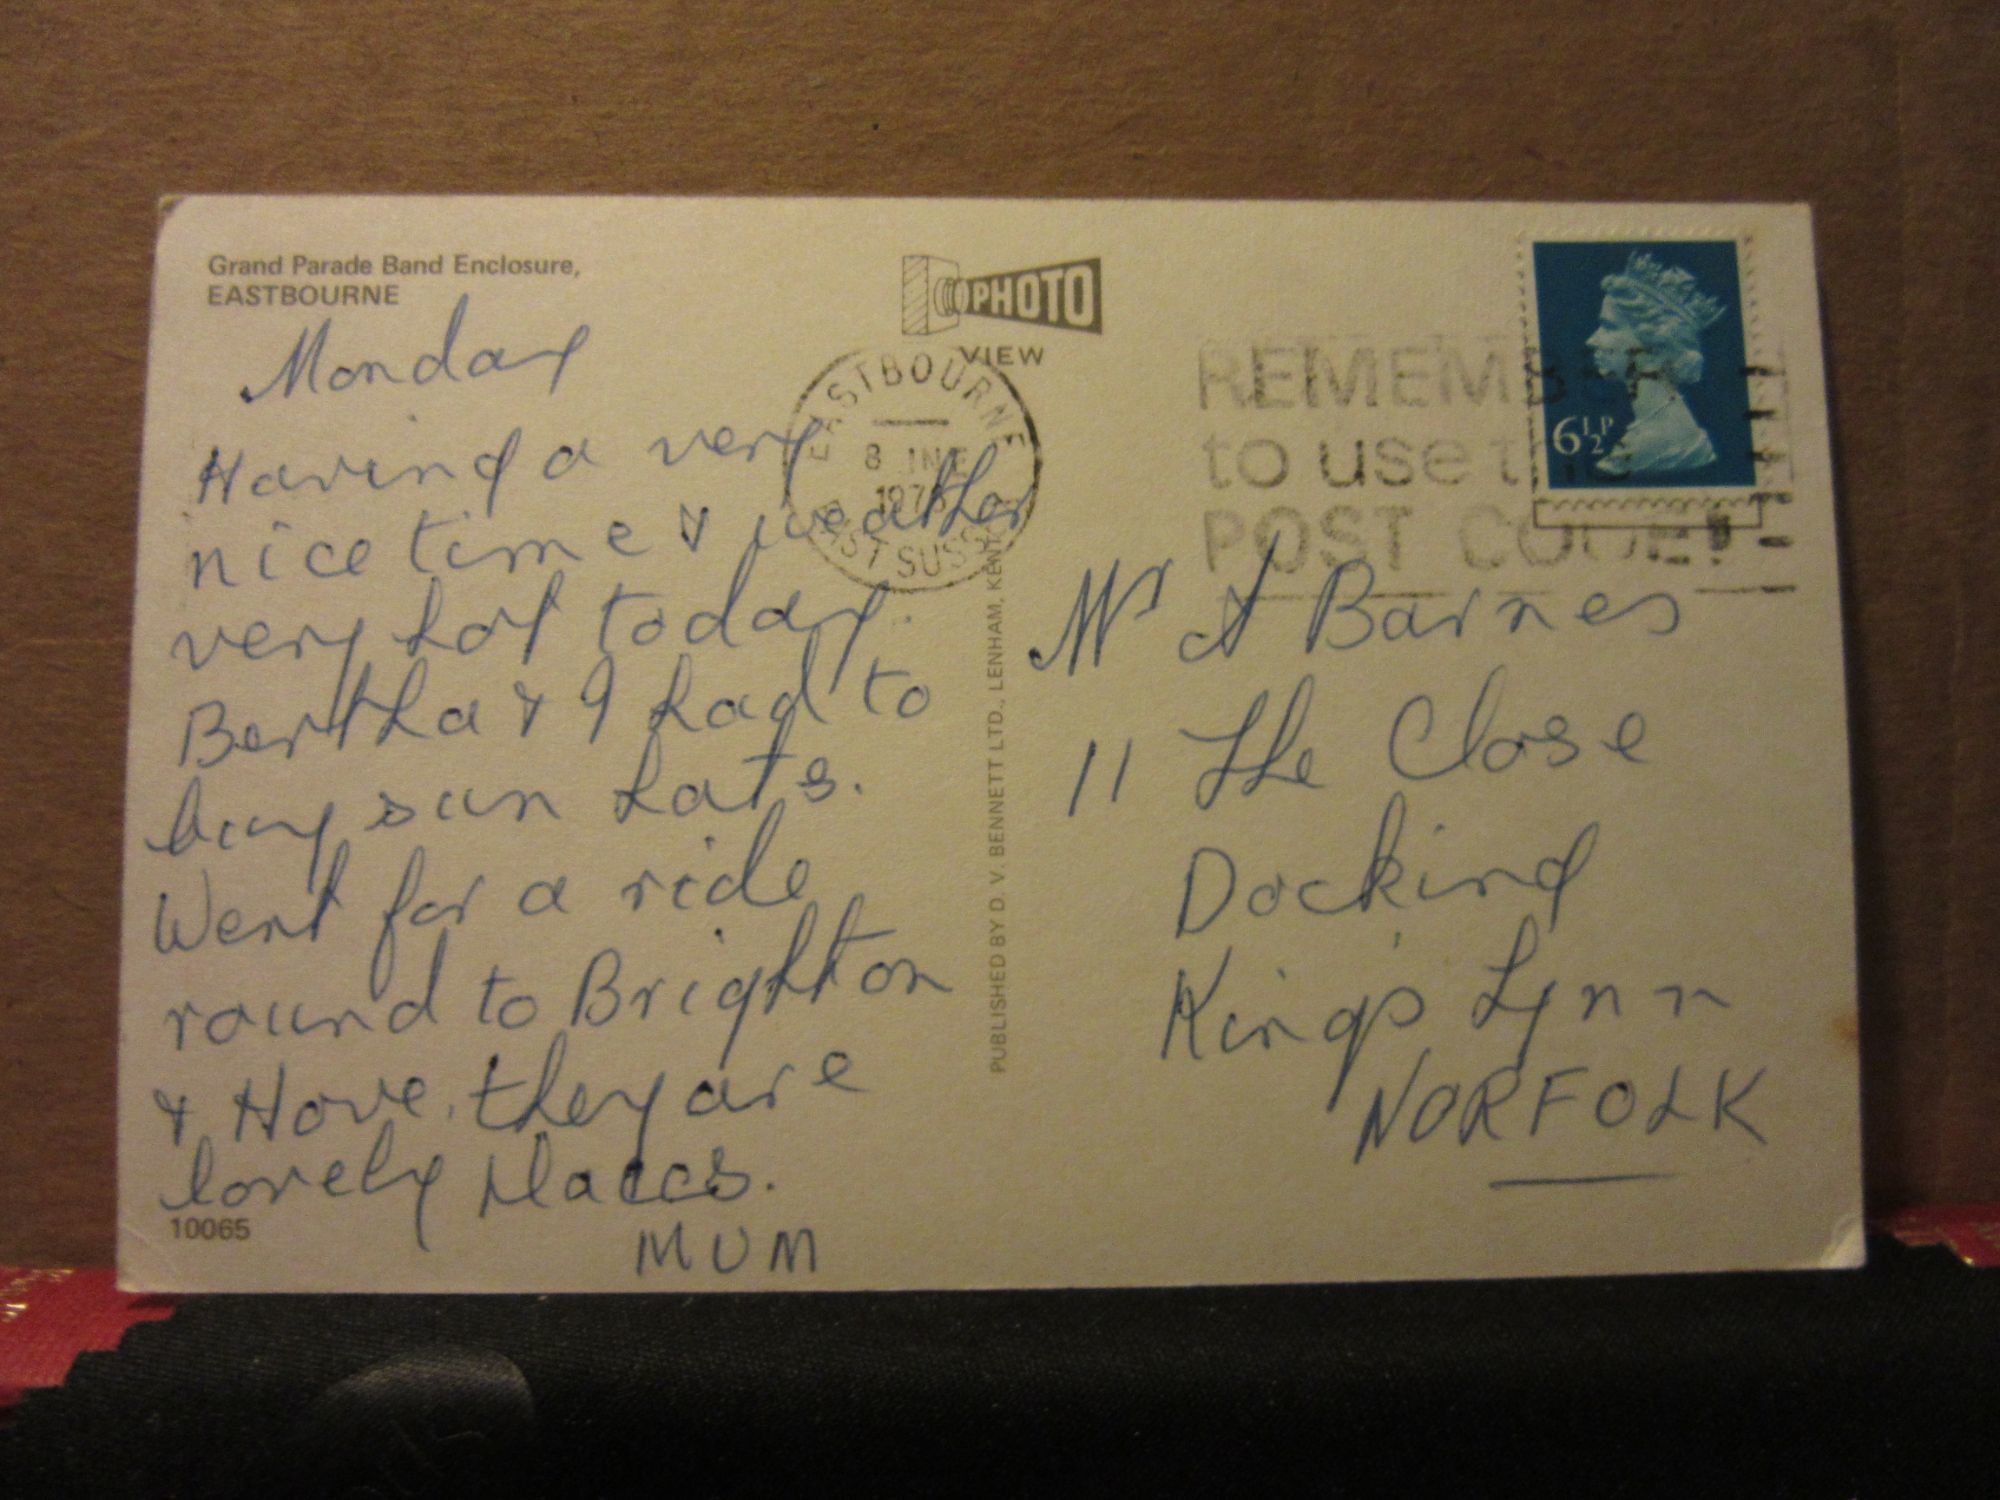 Grand Parade Band Enclosure,
EASTBOURNE
Monday
Having a very
nice time & weather
very hot today.
Bertha & I had to
buy sun hats.
Went for a ride
round to Brighton
& Hove. they are
lovely places.
MUM
10065
PHOTO
VIEW
EASTBOURNE
8 JNE
EAST SUSSEX
PUBLISHED BY D. V. BENNETT LTD., LENHAM, KENT
REMEMBER
to use the
POST CODE!
6½P
Mr A Barnes
11 The Close
Docking
King's Lynn
NORFOLK